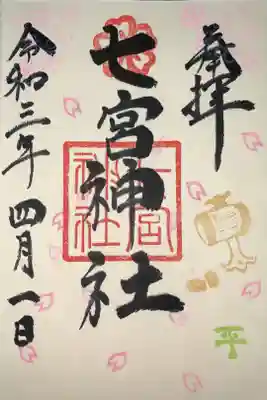 奉拝
七宮神社
七宮神社
平
令和三年
四月一日